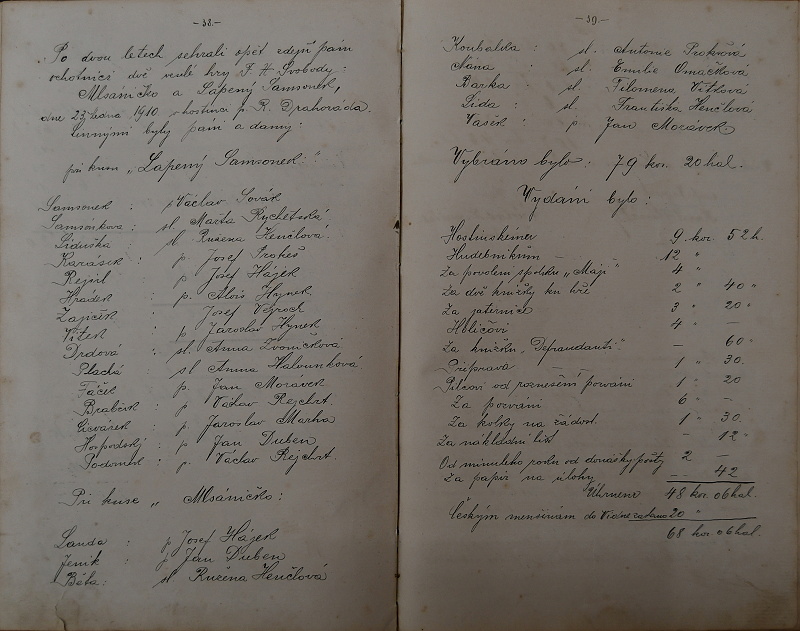 - 38. -
"Po dvou letech sehráli opět zdejší páni
ochotníci dvě veselé hry F. H. Svobody:
Mlsáníčko a Lapený Samsonek,
dne 23. ledna 1910 v hostinci p. R. Drahoráda.
činnými byly páni a dámy:
při kusu „Lapený Samsonek":
Samsonek : p Václav Sovák
Samsonkova : sl. Marta Rychetská
Liduška : sl Ružena Henčlová.
Karásek : p. Josef Prokeš
Rejnl p Josef Hájek
Hradek : p. Alois Hynek
Zajíček : Josef
Vítek : p Jaroslav Hynek
Drdová : sl. Anna Zvoníčková
Plachá sl Anna Halvunková
Fáček : p. Jan Morávek
Brabčík : p Václav Rejchrt.
: p. Jaroslav Macha
Hospodský : p Jan Duben
: p. Václav Rejchrt.
Při kuse „ Mlsáníčko:
Landa : p Josef Hájek
Jeník : p Jan Duben
Běta : sl Ružena Henčlová
- 39. -
Koubalka : sl. Antonie Prokšová
Nána : sl. Emilie Omáčková
Barka : sl. Filomena Vítková
Lída : sl. Františka Henčlová
Vašek : p Jan Morávek
Vybráno bylo : 79 kor. 20 hal.
Vydání bylo :
9 kor. 52 h.
Hudebníkům - 12 "
Za povolení spolku „Máj" - 4 "
Za dvě knížky ku hře 2 " 40 "
Za jaternice 3 " 20 "
Holičovi 4 " -
Za knížku „Defraudanti" - - 60 "
Příprava - 1 " 30.
od roznešení pozvání 1 " 20
Za pozvání 6 " -
Za kolky na žádost. 1 " 30.
Za nákladní list - 12 "
Od minulého roku od donášky pošty 2 -
Za papír na úlohy - - 42
Úhrnem 48 kor. 06 hal.
Českým menšinám do Vídně zasláno 20 "
68 kor 06 hal.